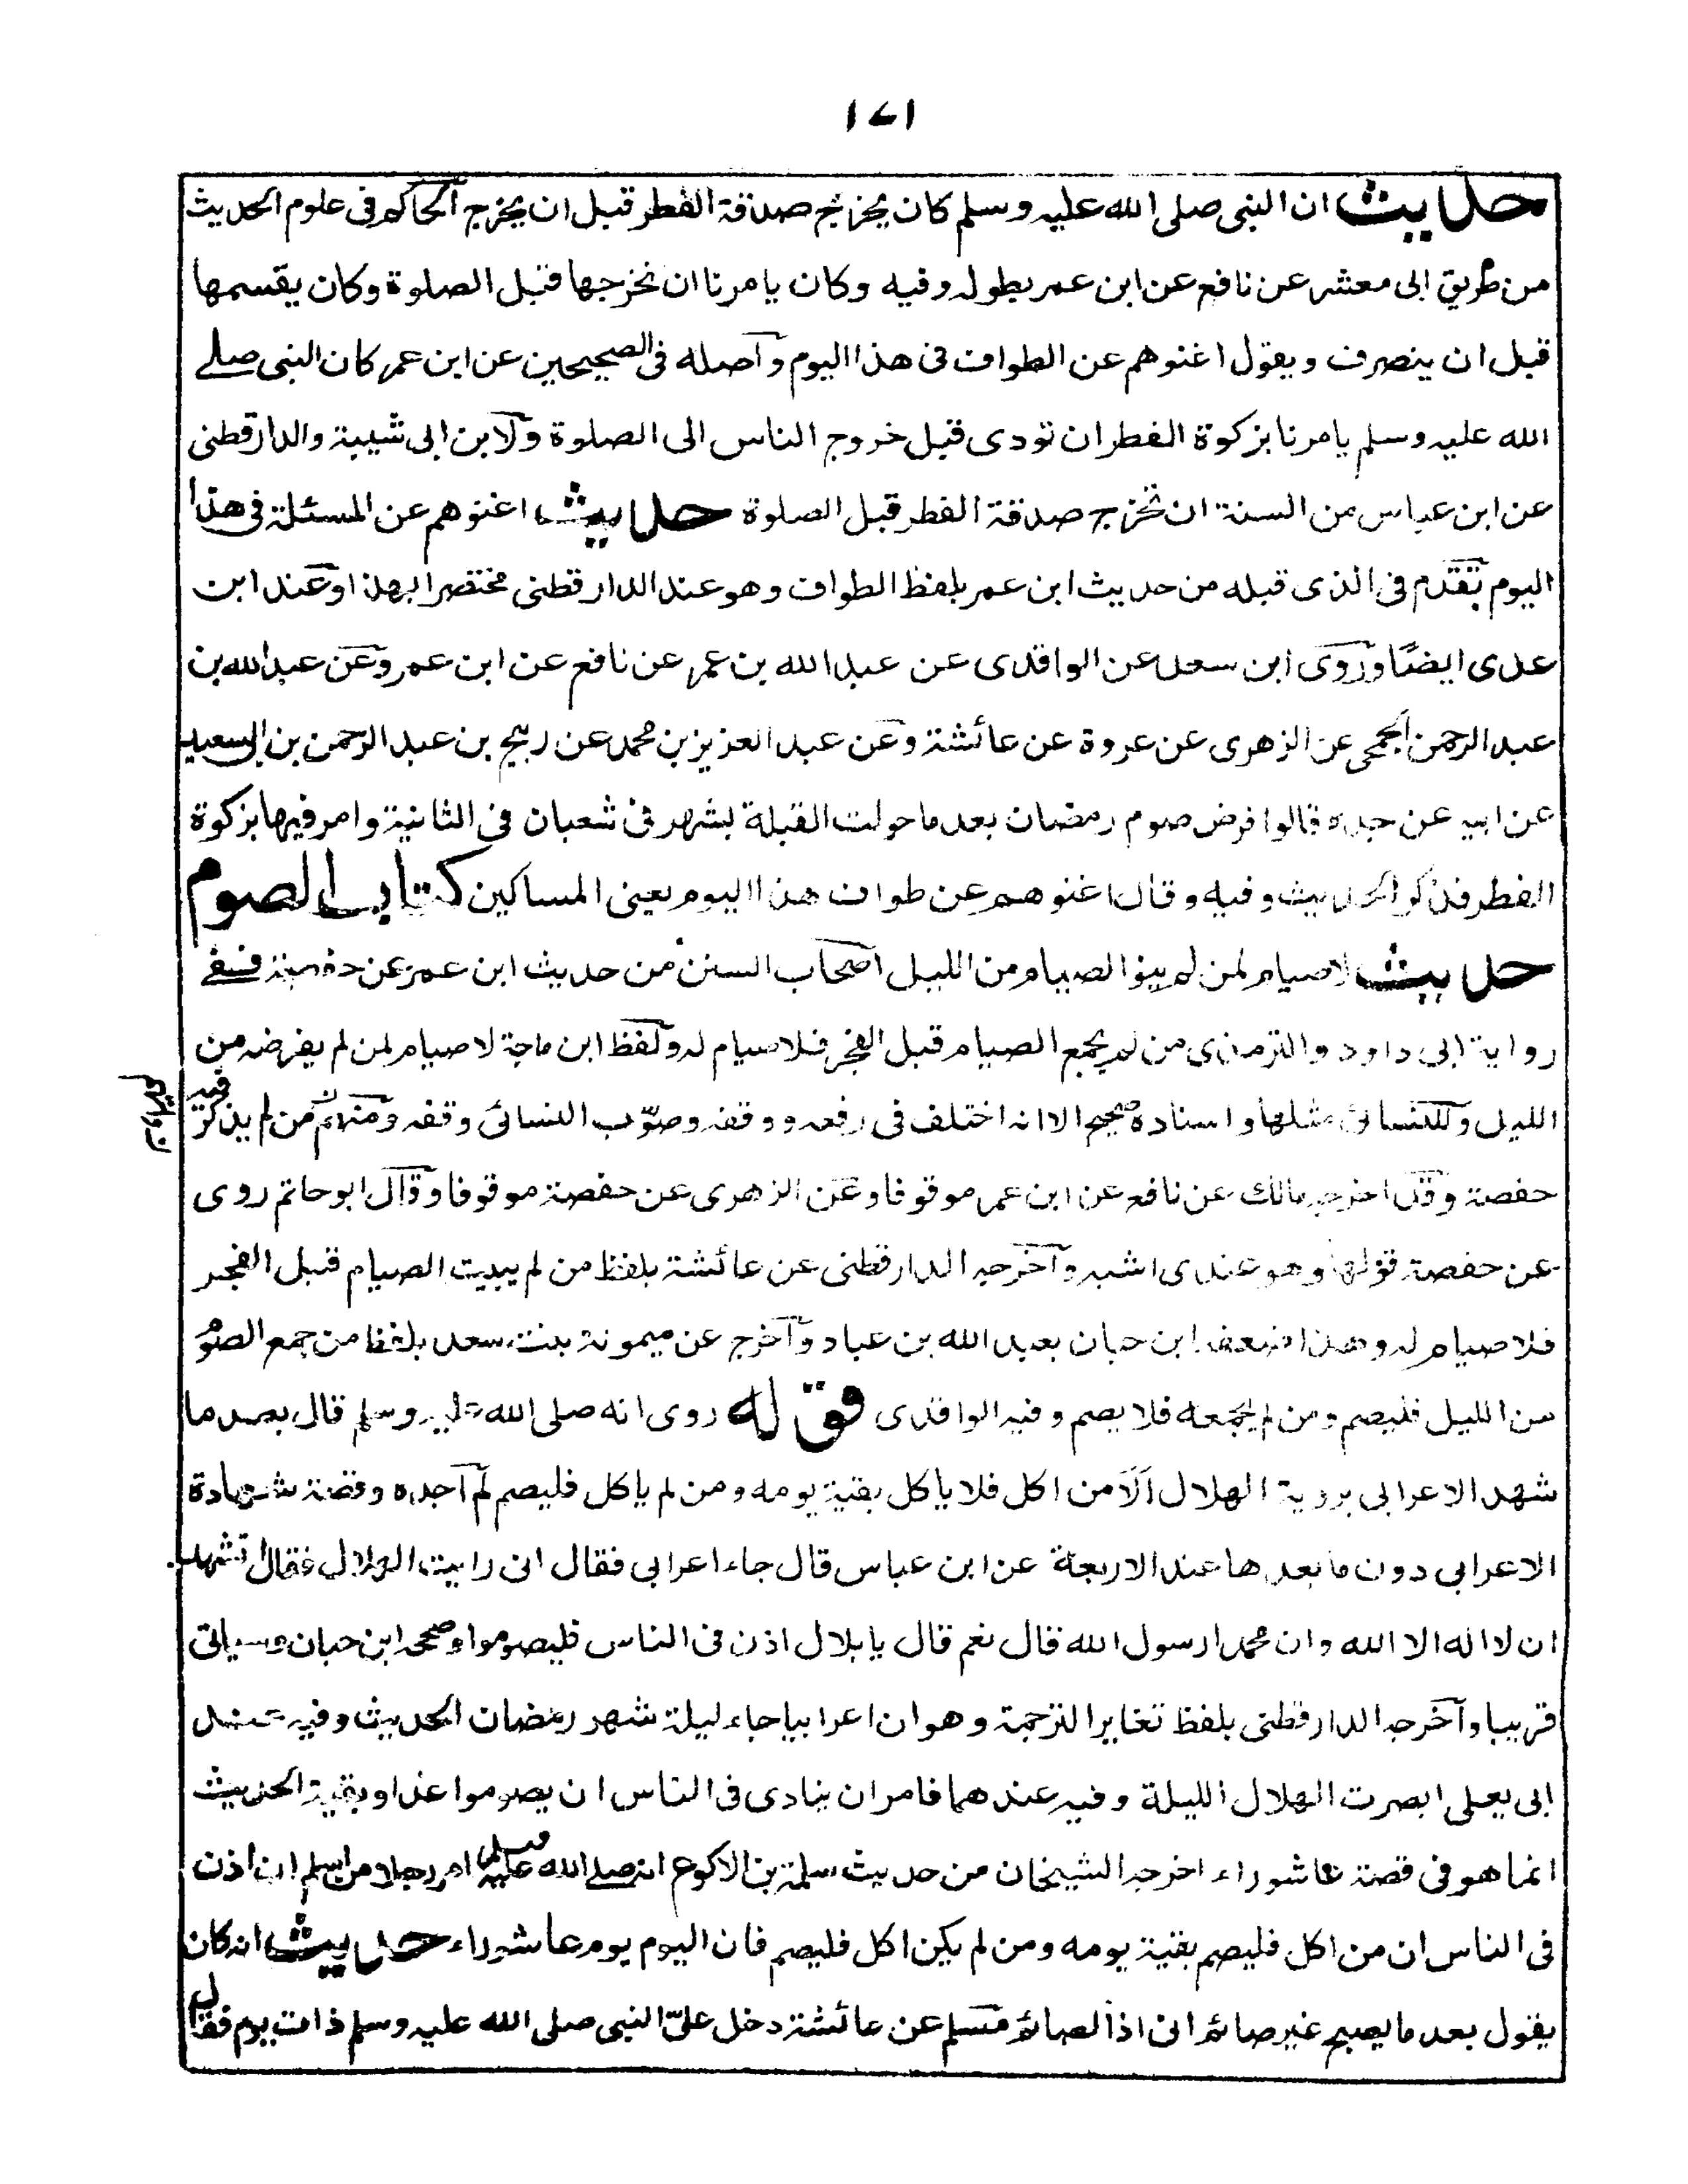 ١٧١
حديث ان النبي صلى الله عليه وسلم كان يخرج صدقة الفطر قبل ان يخرج الحاكم فى علوم الحديث
من طريق ابى معشر عن نافع عن ابن عمر بطوله وفيه وكان يامرنا ان نخرجها قبل الصلوة وكان يقسمها
قبل ان ينصرف ويقول اغنوهم عن الطواف فى هذا اليوم واصله فى الصحيحين عن ابن عمر كان النبى صلے
الله عليه وسلم يامرنا بزكوة الفطر ان تودى قبل خروج الناس الى الصلوة ولابن ابى شيبة والدارقطنى
عن ابن عباس من السنة ان تخرج صدقة الفطر قبل الصلوة حديث اغنوهم عن المسئلة فى هذا
اليوم تقدم فى الذى قبله من حديث ابن عمر بلفظ الطواف وهو عند الدارقطنى مختصرا بهذا وعند ابن
عدى ايضًا وروى ابن سعد عن الواقدى عن عبدالله بن عمر عن نافع عن ابن عمر وعن عبدالله بن
عبدالرحمن الجمحى عن الزهرى عن عروة عن عائشة وعن عبد العزيز بن محمد عن ربيح بن عبد الرحمن بن ابى سعيد
عن ابيه عن جده قالوا فرض صوم رمضان بعد ما حولت القبلة بشهر فى شعبان فى الثانية وامر فيها بزكوة
الفطر فذكر الحديث وفيه وقال اغنوهم عن طواف هذا اليوم يعنى المساكين كتاب الصوم
حديث لا صيام لمن لم ينو الصيام من الليل اصحاب السنن من حديث ابن عمر عن حفصة ففے
رواية ابى داود والترمذى من لم يجمع الصيام قبل الفجر فلا صيام له ولفظ ابن ماجة لا صيام لمن لم يفرضه من
الليل وللنسائى مثلها واسناده صحيح الا انه اختلف فى رفعه ووقفه وصوّب النسائى وقفه ومنهم من لم يذكر فيه
حفصة وقد اخرجه مالك عن نافع عن ابن عمر موقوفا وعن الزهرى عن حفصة موقوفا وقال ابوحاتم روى
عن حفصة قولها وهو عندى اشبه واخرجه الدارقطنى عن عائشة بلفظ من لم يبيت الصيام قبل الفجر
فلا صيام له وهذا ضعفه ابن حبان بعبد الله بن عباد واخرج عن ميمونة بنت سعد بلفظ من جمع الصوم
من الليل فليصم ومن لم يجمعه فلا يصم وفيه الواقدى قوله روى انه صلى الله عليه وسلم قال بعد ما
شهد الاعرابى بروية الهلال اَلَا من اكل فلا ياكل بقية يومه ومن لم ياكل فليصم لم اجده وقصة شهادة
الاعرابى دون ما بعدها عند الاربعة عن ابن عباس قال جاء اعرابى فقال انى رايت الهلال فقال اتشهد
ان لا اله الا الله وان محمدا رسول الله قال نعم قال يا بلال اذن فى الناس فليصوموا وصححه ابن حبان وسياتى
قريبا واخرجه الدارقطنى بلفظ تغاير الترجمة وهو ان اعرابيا جاء ليلة شهر رمضان الحديث وفيه عند
ابى يعلى ابصرت الهلال الليلة وفيه عندهما فامر ان ينادى فى الناس ان يصوموا غدا وبقية الحديث
انما هو فى قصة عاشوراء اخرجه الشيخان من حديث سلمة بن الاكوع انه صلے الله عليه وسلم امر رجلا من اسلم ان اذن
فى الناس ان من اكل فليصم بقية يومه ومن لم يكن اكل فليصم فان اليوم يوم عاشوراء حديث انه كان
يقول بعد ما يصبح غير صائم انى اذا لصائم مسلم عن عائشة دخل علىّ النبى صلى الله عليه وسلم ذات يوم فقال